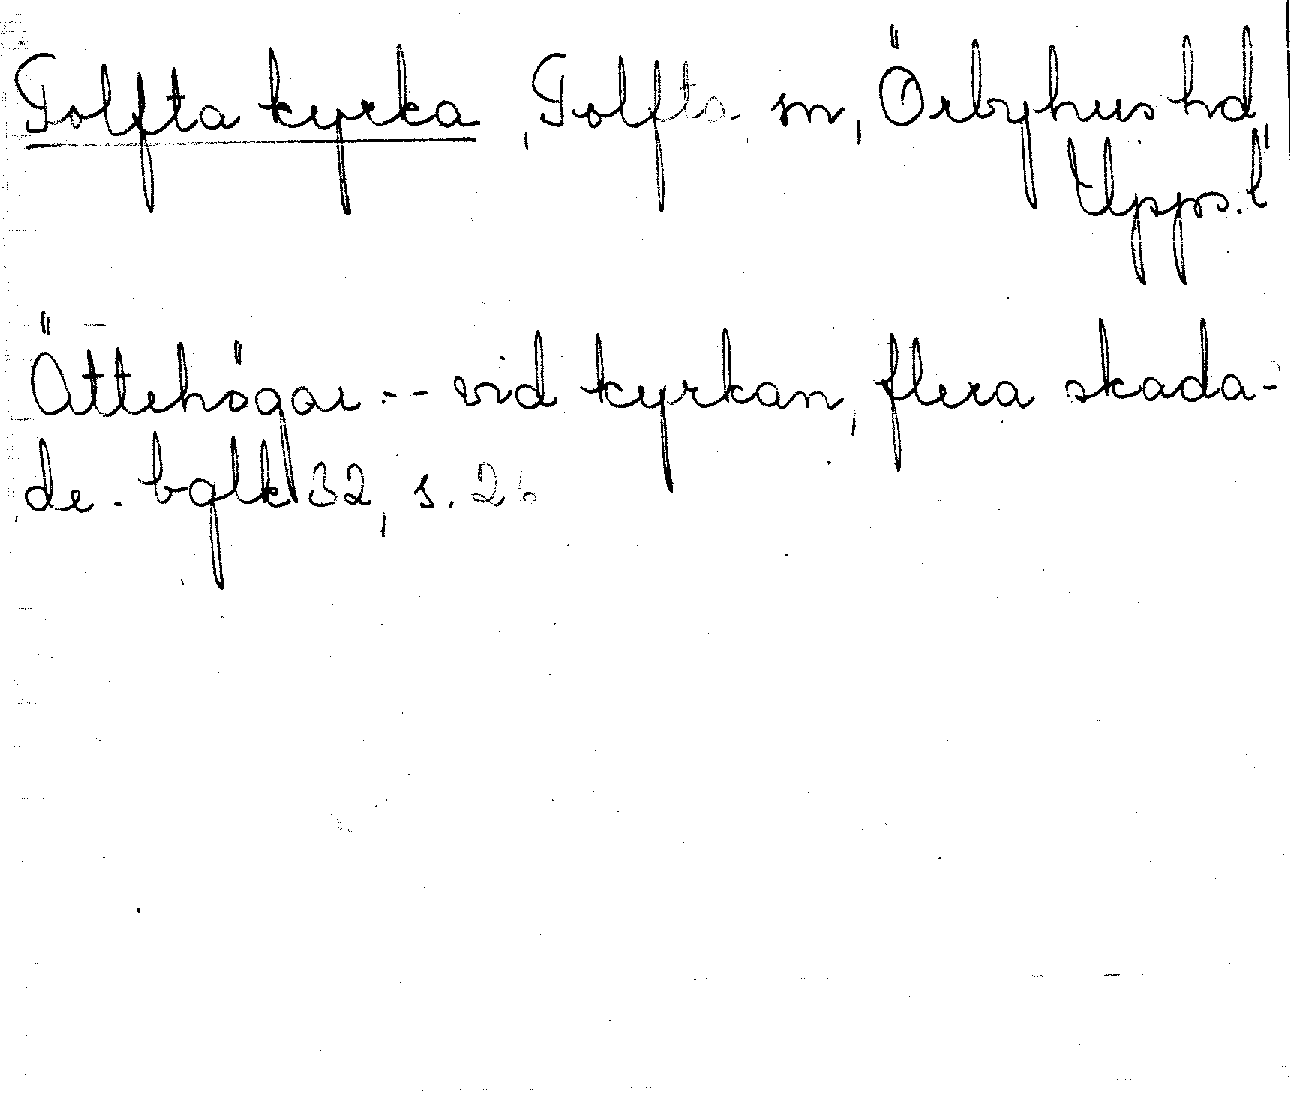 Tolfta kyrka, Tolfta sn, Örbyhus hd,
Upps. l
Ättehögar -- vid kyrkan, flera skada-
de. bglk 32, s. 26